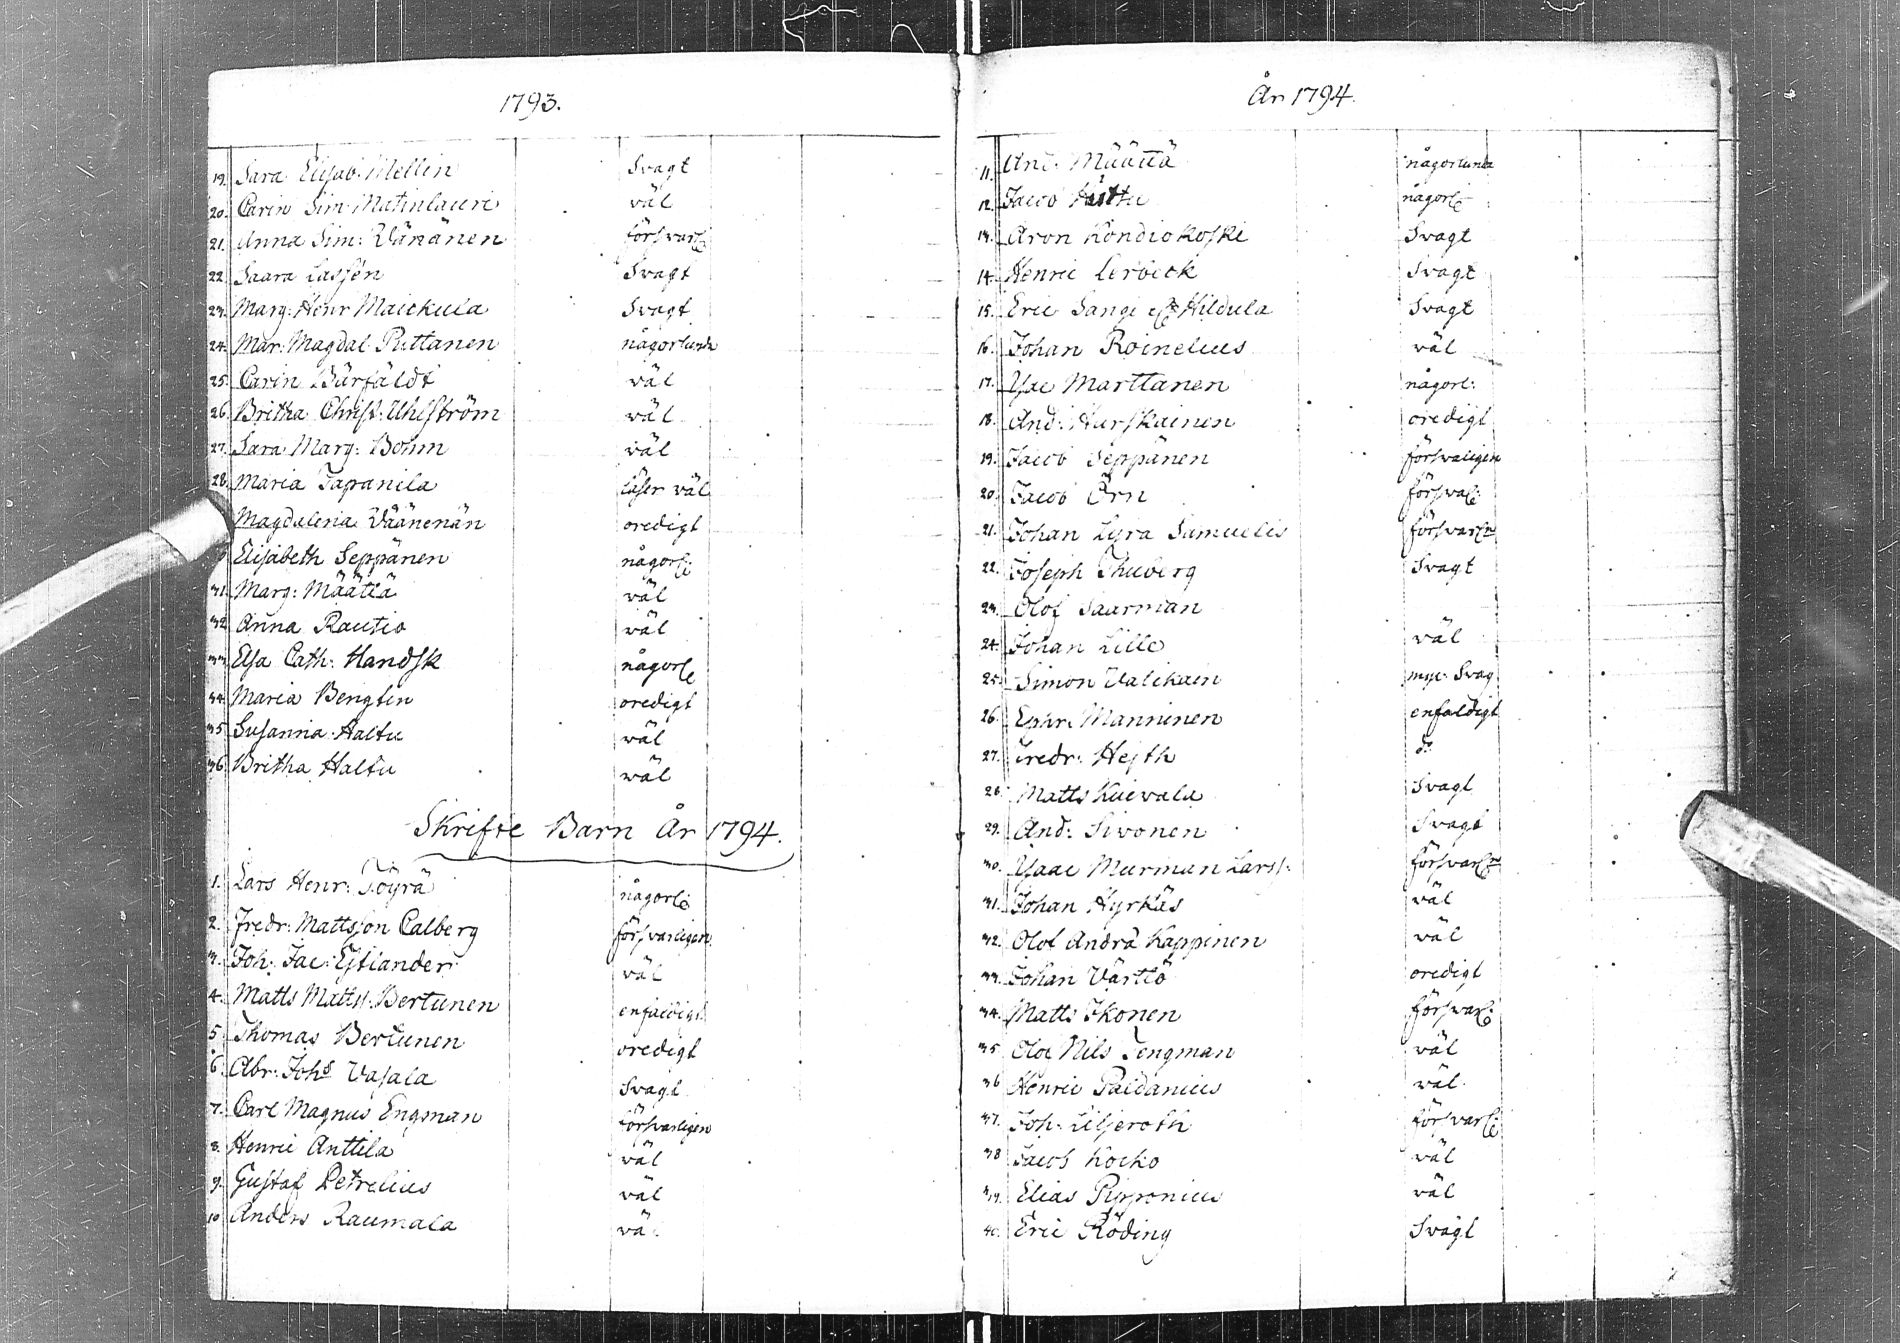 1793.
19. Sara Elisab. Mellin Svagt
20. Carin Sim: Matinlauri väl
21. Anna Sim: Wänänen försvarl:
22. Saara Lassén Svagt
23. Marg: Henr Maickula Svagt
24. Mar: Magdal Puttanen någorlunda
25. Carin Bürfäldt väl
26. Britha Christ: Uhlström väl
27. Sara Marg: Bohm väl
28. Maria Tapanila läser väl
Magdalena Wäänenän oredigt
Elisabeth Seppänen någorl:
31. Marg: Määttä väl
32. Anna Rautio väl
33. Elsa Cath: Handsk någorl:
34. Maria Bengtin oredigt
35 Susanna Haltu väl
36. Britha Haltu väl
Skrifte Barn År 1794.
1. Lars Henr: Töyrä någorl:
2. Fredr: Mattsson Calberg försvarligen
3. Joh: Jac: Estlander väl
4. Matts Matts: Bertunen enfaldigt
5. Thomas Bertunen oredigt
6. Abr: Johs Vasala Svagt
7. Carl Magnus Engman försvarligen
8. Henric Anttila väl
9. Gustaf Petrelius väl
10 Anders Raumala väl
År 1794.
11. And: Määttä någorlunda
12. Jacob någorl:
13. Aron Kondiokoski Svagt
14. Henric Lerbeck Svagt
15. Eric Sangi Hildula Svagt
16. Johan Roinelius väl
17. Isac Marttanen någorl:
18. And: Hurskainen oredigt
19. Jacob Seppänen försvaligen
20. Jacob Örn försval:
21. Johan Lyra Samuelis försvarl:n
22. Joseph Thuberg Svagt
23. Olof Saarman
24. Johan Lille väl
25. Simon Valikain myc: Svag
26. Ephr: Manninen enfaldigt
27. Fredr: Hejth do
28. Matts Kuivala Svagt
29. And: Sivonen Svagt
30. Isaac Murman Larss: försvarl:n
31. Johan Hyrkäs väl
32. Olof Andrä Kappinen väl
33. Johan Värttö oredigt
34. Matts Ikonen försvarl:
35 Olof Nils Tengman väl
36 Henric Paldanius väl
37. Joh: Liljeroth försvarl:
38 Jacob Kocko väl
39. Elias Pipponius väl
40. Eric Röding Svagt